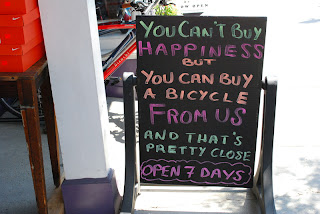 YOU CAN'T BUY
HAPPINESS
BUT
YOU CAN BUY
A BICYCLE
FROM US
AND THAT'S
PRETTY CLOSE
OPEN 7 DAYS